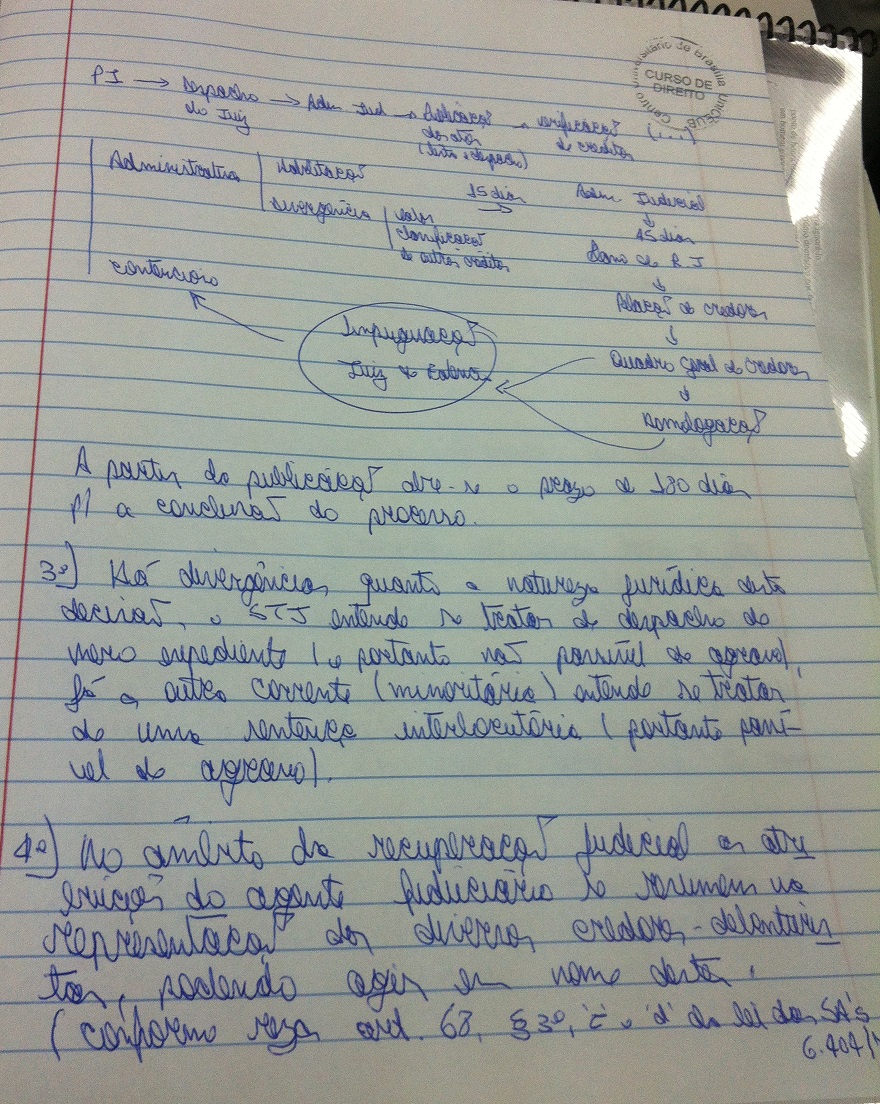 Centro Universitário de Brasília UniCEUB
CURSO DE
DIREITO
PI → Despacho → Adm Jud → Publicação → verificação (....)
do Juiz dos atos de créditos
Administrativa Habilitação 15 dias Adm Judicial
divergência valor → ↓
classificação 45 dias
de outros créditos Plano de R J
contencioso ↓
Relação de credores
Impugnação ↓
Juiz de Quadro geral de credores
↓
Homologação
A partir da publicação abre-se o prazo de 180 dias
p/ a conclusão do processo.
3º) Há divergências quanto a natureza jurídica desta
decisão, o STJ entende se tratar de despacho de
mero expediente (e portanto não passível de agravo),
já a outra corrente (minoritária) entende se tratar
de uma sentença interlocutória (portanto passí-
vel de agravo).
4º) No âmbito da recuperação judicial as atri
buições do agente fiduciário se resumem na
representação dos diversos credores-debenturis
tas, podendo agir em nome destes.
(conforme reza art. 68, § 3º, 'c' e 'd' da lei das SA's
6.404/